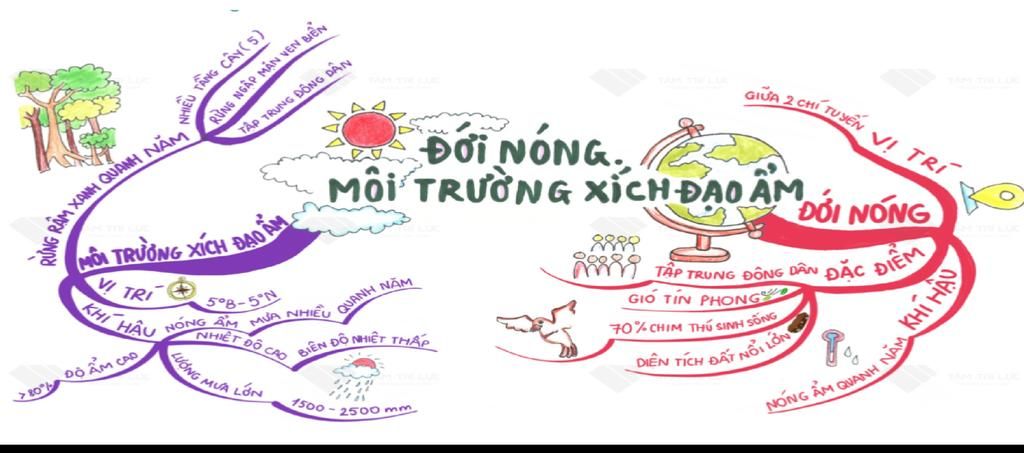 ĐỚI NÓNG.
MÔI TRƯỜNG XÍCH ĐẠO ẨM
ĐỚI NÓNG
VỊ TRÍ
GIỮA 2 CHÍ TUYẾN
ĐẶC ĐIỂM
TẬP TRUNG ĐÔNG DÂN
GIÓ TÍN PHONG
70% CHIM THÚ SINH SỐNG
DIỆN TÍCH ĐẤT NỔI LỚN
KHÍ HẬU
NÓNG ẨM QUANH NĂM
MÔI TRƯỜNG XÍCH ĐẠO ẨM
RỪNG RẬM XANH QUANH NĂM
NHIỀU TẦNG CÂY (5)
RỪNG NGẬP MẶN VEN BIỂN
TẬP TRUNG ĐÔNG DÂN
VỊ TRÍ
5°B - 5°N
KHÍ HẬU
NÓNG ẨM
MƯA NHIỀU
QUANH NĂM
NHIỆT ĐỘ CAO
BIÊN ĐỘ NHIỆT THẤP
LƯỢNG MƯA LỚN
1500 - 2500 mm
ĐỘ ẨM CAO
>80%
TÂM TRÍ LỰC